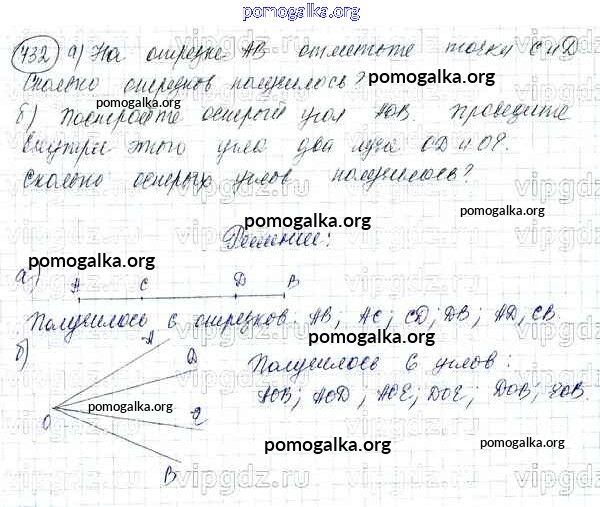 pomogalka.org
732 а) На отрезке АВ отметьте точки С и D
Сколько отрезков получилось? pomogalka.org
pomogalka.org
б) Постройте острый угол АОВ. Проведите
внутри этого угла два луча OD и OE.
Сколько острых углов получилось?
vipgdz.ru
pomogalka.org
pomogalka.org
Решение:
pomogalka.org
а)
А С D В
Получилось 6 отрезков: АВ; АС; CD; DB; AD, CB.
б)
А
D
Получилось 6 углов:
АОВ; AOD; AOE; DOE; DOB; EOB.
pomogalka.org
О
E
В
pomogalka.org
pomogalka.org
vipgdz.ru vipgdz.ru vipgdz.ru